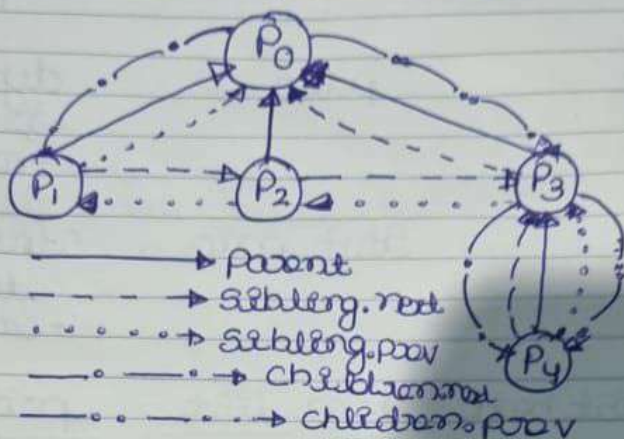 P0
P1 P2 P3
parent
sibling.next
sibling.prev
P4
children.next
children.prev